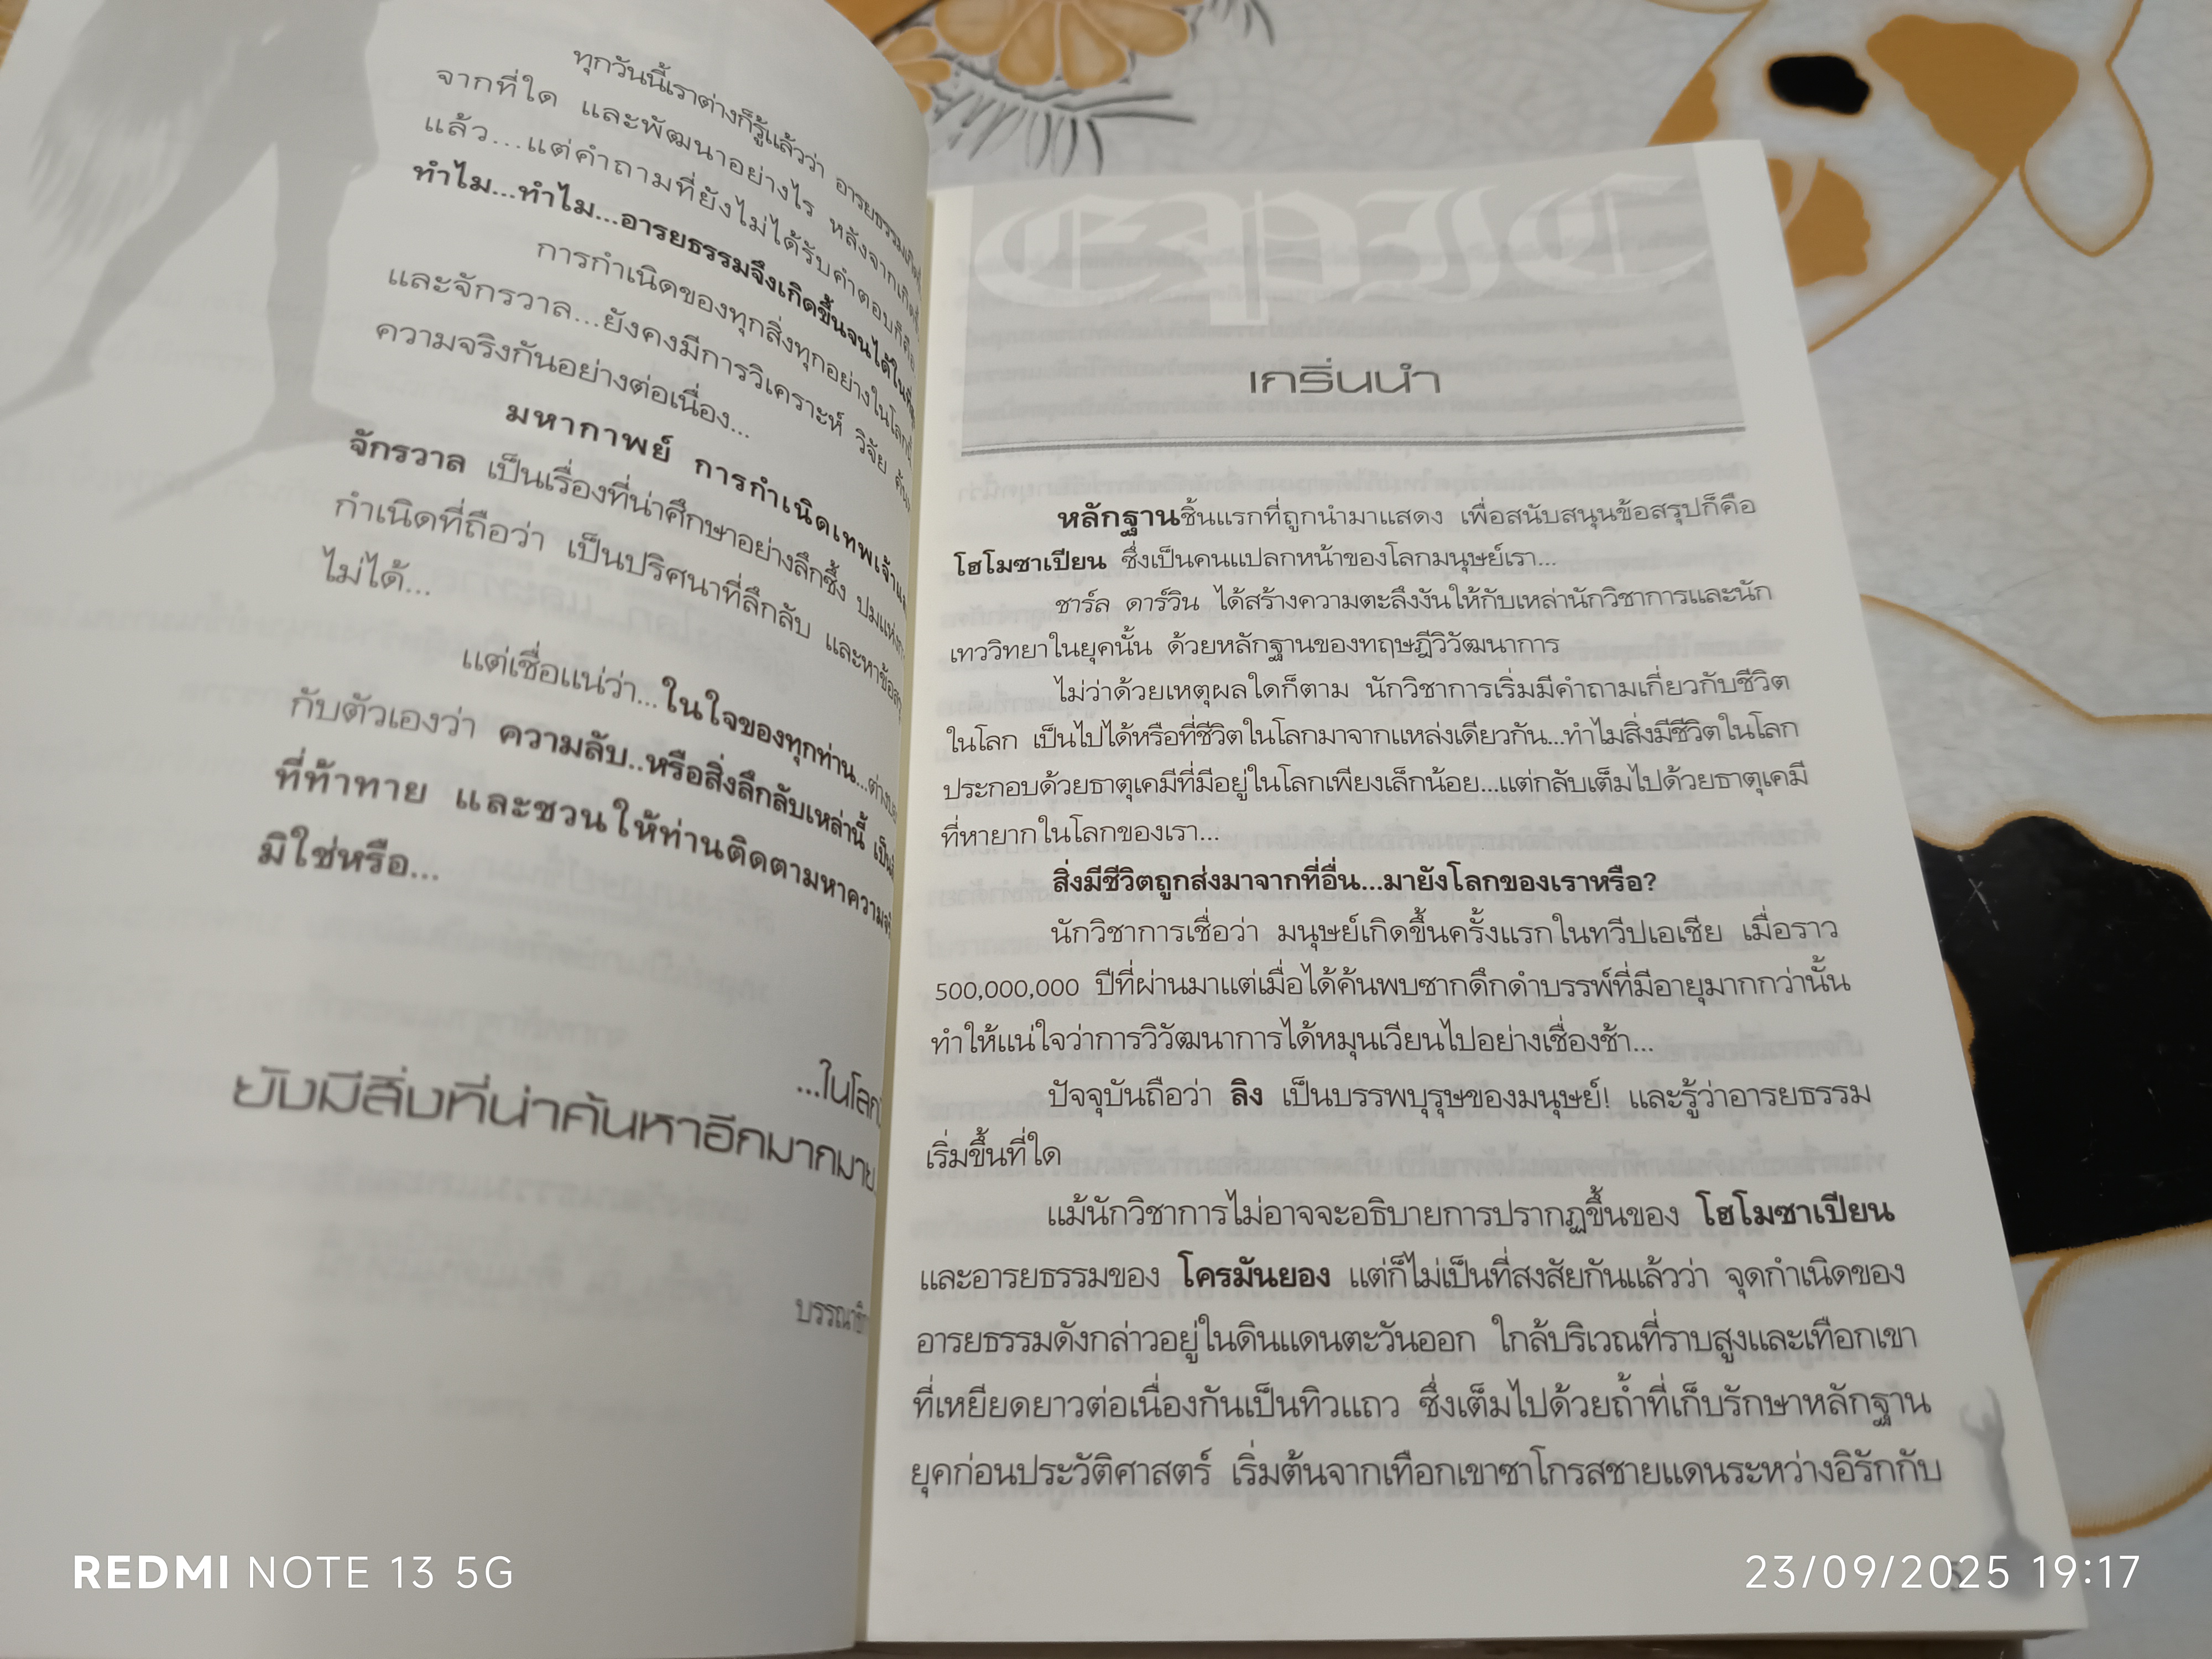 ทุกวันนี้เราต่างก็รู้แล้วว่า อารยธรรม
จากที่ใด และพัฒนาอย่างไร หลังจาก
แล้ว...แต่คำถามที่ยังไม่ได้รับคำตอบก็คือ
ทำไม...ทำไม...อารยธรรมจึงเกิดขึ้นจนได้ในที่สุด
การกำเนิดของทุกสิ่งทุกอย่างในโลกนี้
และจักรวาล...ยังคงมีการวิเคราะห์ วิจัย
ความจริงกันอย่างต่อเนื่อง...
มหากาพย์ การกำเนิดเทพเจ้า
จักรวาล เป็นเรื่องที่น่าศึกษาอย่างลึกซึ้ง ปมแห่ง
กำเนิดที่ถือว่า เป็นปริศนาที่ลึกลับ และหาข้อ
ไม่ได้...
แต่เชื่อแน่ว่า...ในใจของทุกท่าน...
กับตัวเองว่า ความลับ..หรือสิ่งลึกลับเหล่านี้
ที่ท้าทาย และชวนให้ท่านติดตามหาความ
มิใช่หรือ...
...ในโลก
ยังมีสิ่งที่น่าค้นหาอีกมากมาย
epic
เกริ่นนำ
หลักฐานชิ้นแรกที่ถูกนำมาแสดง เพื่อสนับสนุนข้อสรุปก็คือ
โฮโมซาเปียน ซึ่งเป็นคนแปลกหน้าของโลกมนุษย์เรา...
ชาร์ล ดาร์วิน ได้สร้างความตะลึงงันให้กับเหล่านักวิชาการและนัก
เทววิทยาในยุคนั้น ด้วยหลักฐานของทฤษฎีวิวัฒนาการ
ไม่ว่าด้วยเหตุผลใดก็ตาม นักวิชาการเริ่มมีคำถามเกี่ยวกับชีวิต
ในโลก เป็นไปได้หรือที่ชีวิตในโลกมาจากแหล่งเดียวกัน...ทำไมสิ่งมีชีวิตในโลก
ประกอบด้วยธาตุเคมีที่มีอยู่ในโลกเพียงเล็กน้อย...แต่กลับเต็มไปด้วยธาตุเคมี
ที่หายากในโลกของเรา...
สิ่งมีชีวิตถูกส่งมาจากที่อื่น...มายังโลกของเราหรือ?
นักวิชาการเชื่อว่า มนุษย์เกิดขึ้นครั้งแรกในทวีปเอเชีย เมื่อราว
500,000,000 ปีที่ผ่านมาแต่เมื่อได้ค้นพบซากดึกดำบรรพ์ที่มีอายุมากกว่านั้น
ทำให้แน่ใจว่าการวิวัฒนาการได้หมุนเวียนไปอย่างเชื่องช้า...
ปัจจุบันถือว่า ลิง เป็นบรรพบุรุษของมนุษย์! และรู้ว่าอารยธรรม
เริ่มขึ้นที่ใด
แม้นักวิชาการไม่อาจจะอธิบายการปรากฏขึ้นของ โฮโมซาเปียน
และอารยธรรมของ โครมันยอง แต่ก็ไม่เป็นที่สงสัยกันแล้วว่า จุดกำเนิดของ
อารยธรรมดังกล่าวอยู่ในดินแดนตะวันออก ใกล้บริเวณที่ราบสูงและเทือกเขา
ที่เหยียดยาวต่อเนื่องกันเป็นทิวแถว ซึ่งเต็มไปด้วยถ้ำที่เก็บรักษาหลักฐาน
ยุคก่อนประวัติศาสตร์ เริ่มต้นจากเทือกเขาซาโกรสชายแดนระหว่างอิรักกับ
REDMI NOTE 13 5G
23/09/2025 19:17